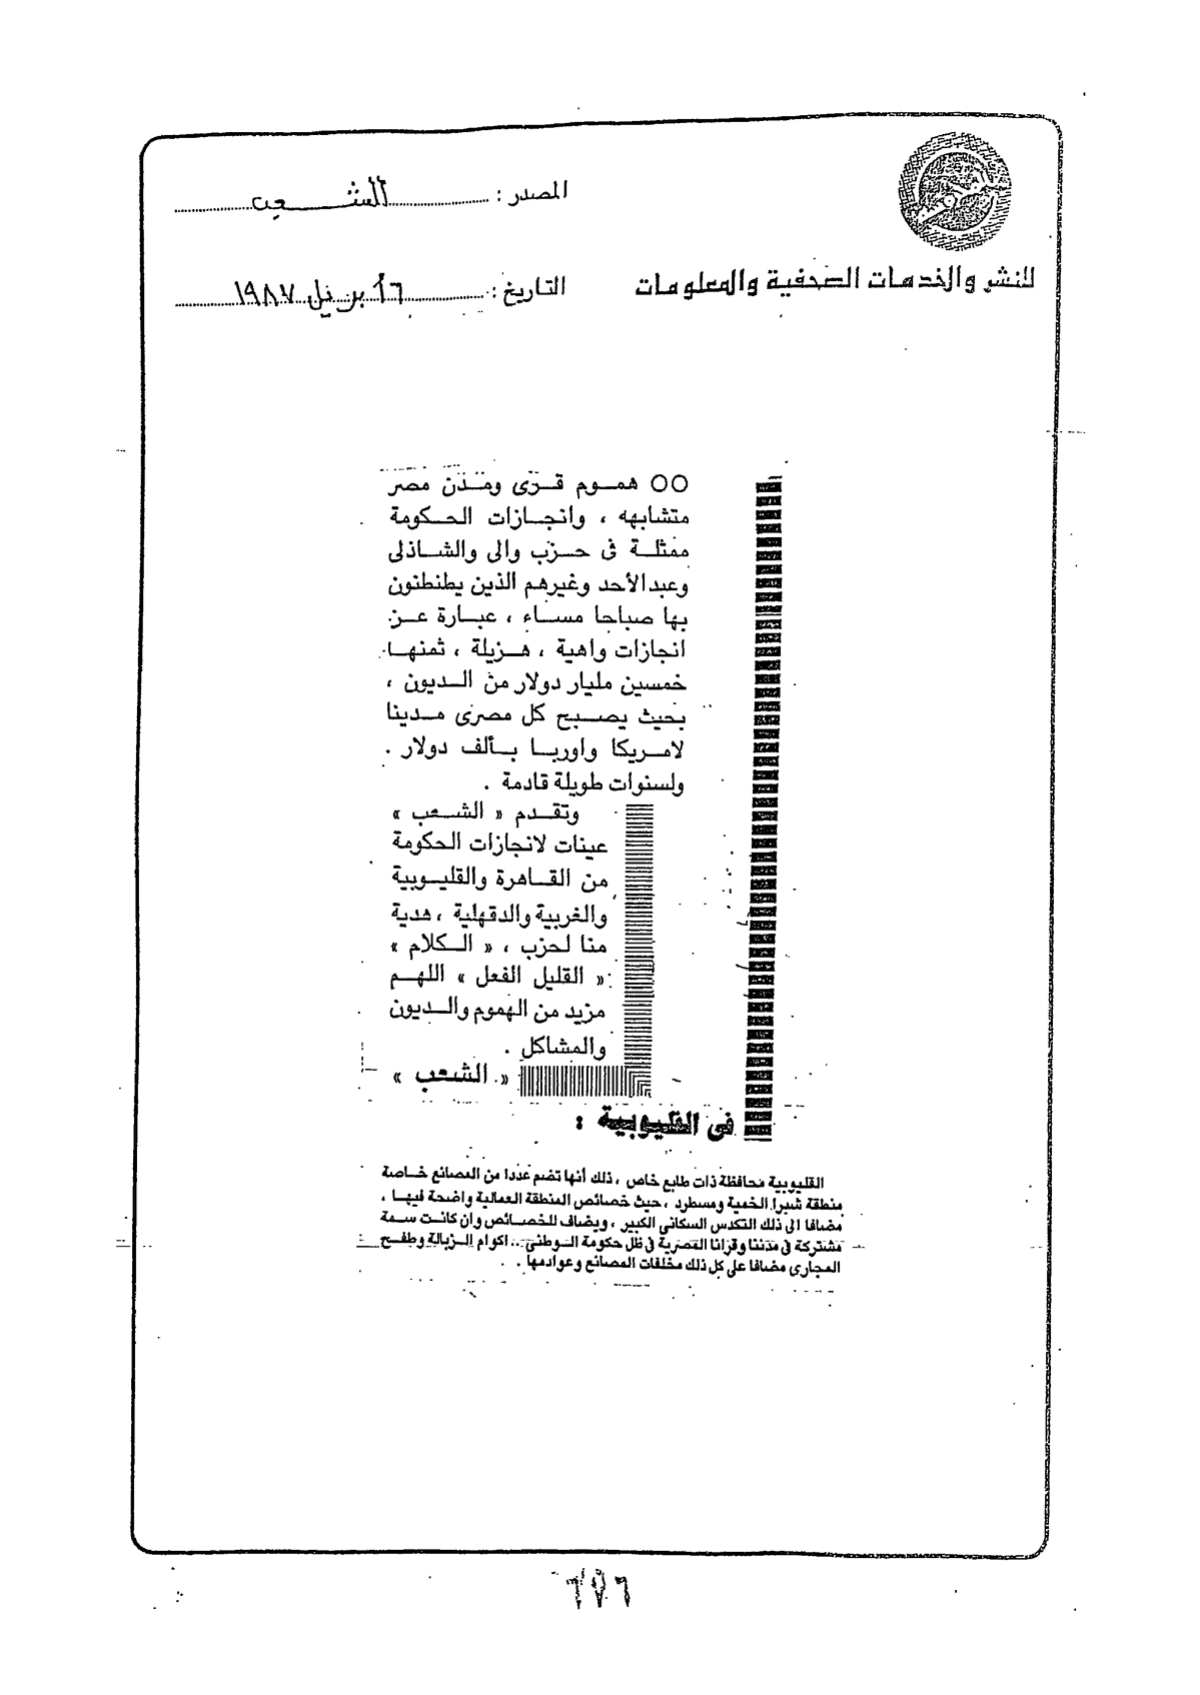 المصدر : الشعب
للنشر والخدمات الصحفية والمعلومات
التاريخ : ١٦ ابريل ١٩٨٧
○○ همــوم قــرى ومــدن مصر
متشابهه ، وانجــازات الحــكومة
ممثلــة فى حــزب والى والشــاذلى
وعبدالأحد وغيرهم الذين يطنطنون
بها صباحا مســاء ، عبــارة عــن
انجازات واهية ، هــزيلة ، ثمنهــا
خمسين مليار دولار من الــديون ،
بحيث يصــبح كل مصرى مــدينا
لامــريكا واوربــا بــألف دولار .
ولسنوات طويلة قادمة .
وتقــدم « الشــعب »
عينات لانجازات الحكومة
من القــاهرة والقليــوبية
والغربية والدقهلية ، هدية
منا لحزب ، « الــكلام »
« القليل الفعل » اللهــم
مزيد من الهموم والــديون
والمشاكل .
« الشعب »
فى القليوبية :
القليوبية محافظة ذات طابع خاص ، ذلك أنها تضم عددا من المصانع خــاصة
منطقة شبرا الخمية ومسطرد ، حيث خصائص المنطقة العمالية واضحة فيهــا ،
مضافا الى ذلك التكدس السكانى الكبير ، ويضاف للخصــائص وان كانــت ســمة
مشتركة فى مدننا وقرانا المصرية فى ظل حكومة الــوطنى .. اكوام الــزبالة وطفــح
المجارى مضافا على كل ذلك مخلفات المصانع وعوادمها .